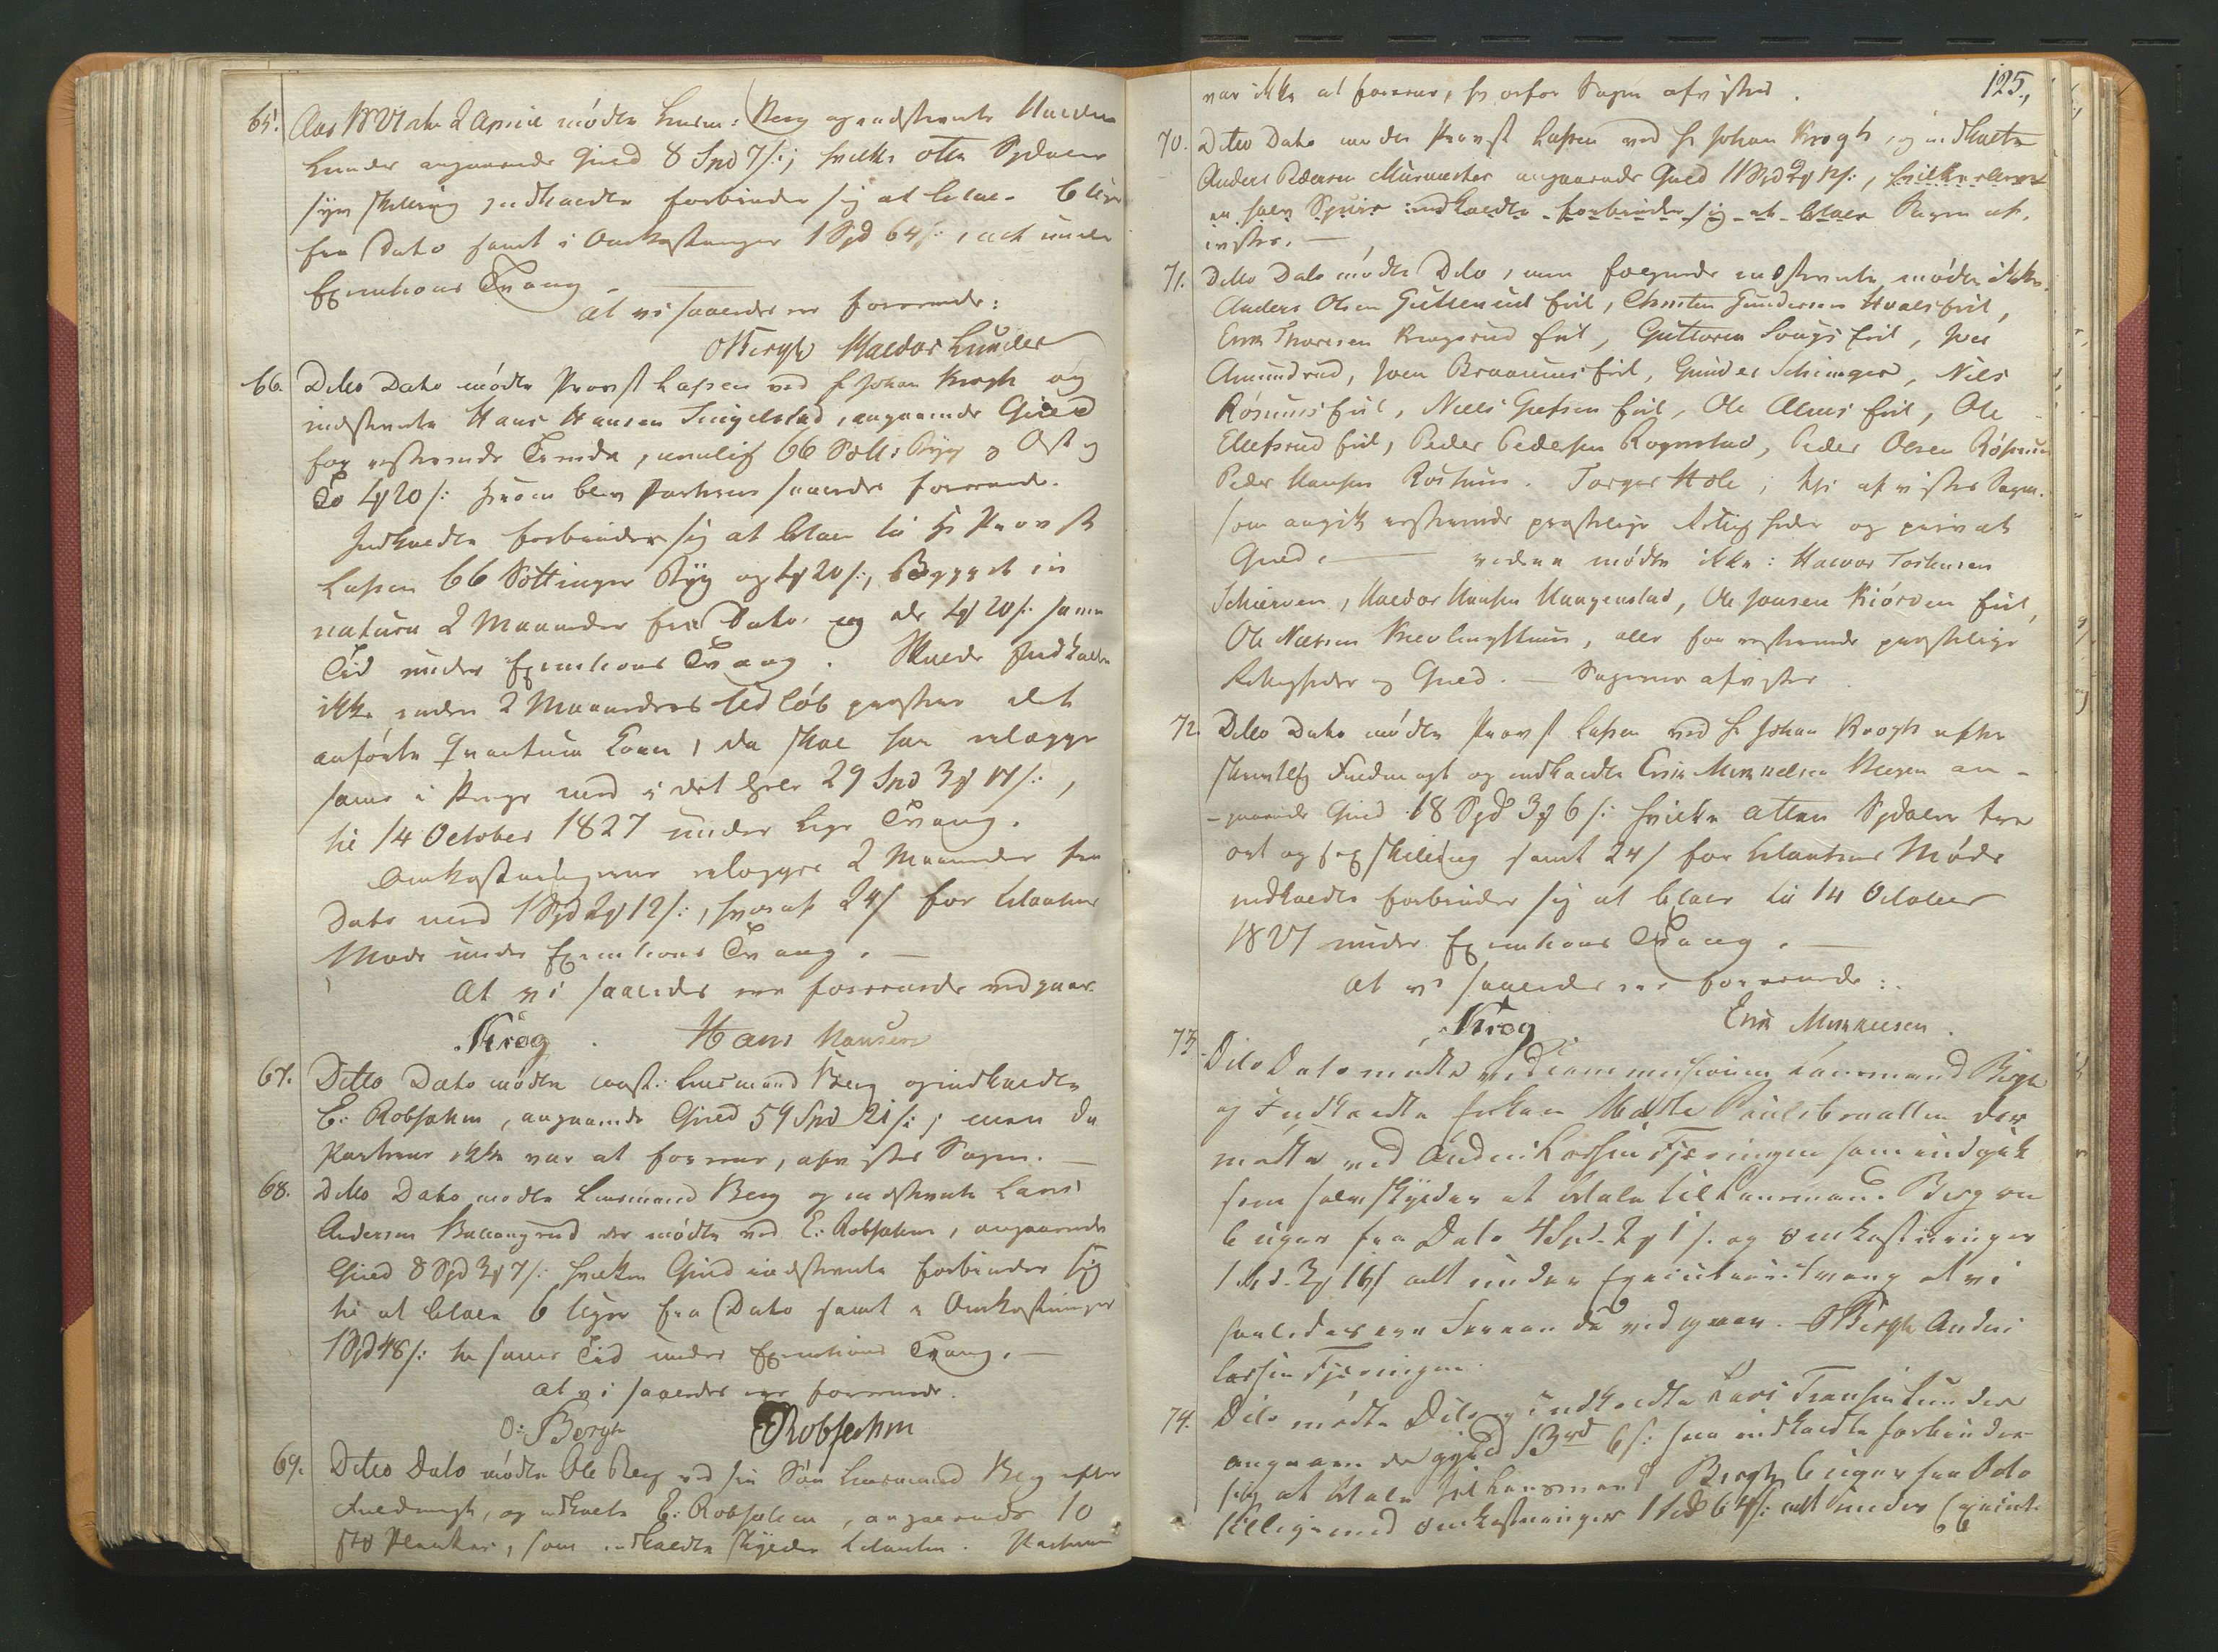 65. Aar 1827 den 2 April mødte Lensm: Berg og indstevnte Haldor
Lunder angaaende Gield 8 Spd 7 s:; hvilke otte Spdaler
syv skilling Indkaldte forbinder sig at betale 6 Uger
fra Dato samt i Omkostninger 1 Spd 64 s:, alt under
Executions Tvang.
At vi saaledes ere forenede:
OBergh Haldor Lunder
66. Ditto Dato mødte Provst Lassen ved Hr Johan Krogh og
indstevnte Hans Hansen Tingelstad, angaaende Gield
for resterende Tiende, nemlig 66 Sott: Byg og Ost og
Ko 4 # 20 s: hvorom blev Parterne saaledes forenede.
Indkaldte forbinder sig at betale til Hr Provst
Lassen 66 Sottinger Byg og 4 # 20 s:, Bygget in
natura 2 Maaneder fra Dato, og de 4 # 20 s: samme
Tid under Executions Tvang. Skulde Indkaldte
ikke inden 2 Maaneders Udløb præstere det
anførte Qvantum Korn, da skal han erlægge
samme i Penge med i det hele 29 Spd 3 # 17 s:,
til 14 October 1827 under lige Tvang.
Omkostningerne erlægges 2 Maaneder fra
Dato med 1 Spd 2 # 12 s:, hvoraf 24 s for Citantens
Møde under Executions Tvang.
At vi saaledes ere forenede vedgaaer
Krog. Hans Hansen
67. Ditto Dato mødte const: Lensmand Berg og indkaldte
E: Robsahm, angaaende Gield 59 Spd 21 s:; men da
Parterne ikke var at forene, afvistes Sagen.
68. Ditto Dato mødte Lensmand Berg og indstevnte Lars
Andersen der mødte ved E: Robsahm, angaaende
Gield 8 Spd 3 # 7 s: hvilken Gield indstevnte forbinder sig
til at betale 6 Uger fra Dato samt i Omkostninger
1 Spd 48 s: til samme Tid under Executions Tvang.
At vi saaledes ere forenede.
O: Bergh ERobsahm
69. Ditto Dato mødte Ole Berg ved sin Søn Lensmand Berg efter
Fuldmagt, og indkaldte E: Robsahm, angaaende 10
Planker, som indkaldte skylder Citanten. Parterne
125.
var ikke at forene, hvorfor Sagen afvistes.
70. Ditto Dato mødte Provst Lassen ved Hr Johan Krogh, og indkaldte
Anders Pedersen Murmester angaaende Gield 11 Spd 2 # 12 s:, hvilke elleve
en halv Spdlr indkaldte forbinder sig at betale Sagen af-
vistes.
71. Ditto Dato mødte Dito, men følgende indstevnte mødte ikke.
Anders Olsen Gullerud Eiet, Christen Gundersen Hvalseiet,
Erik Thoresen Eiet, Guttorm Eiet, Joen
Amundrud, Joen Eiet, Gunder Schinger, Niels
Røsumseiet, Niels Eiet, Ole Almseiet, Ole
Ellefsrud Eiet, Peder Pedersen Rognstad, Peder Olsen Røssum
Peder Hansen. Torger Hole; thi afvistes Sagen.
som angik resterende præstelige Rettigheder og privat
Gield. videre mødte ikke: Halvor Torstensen
Schierven, Haldor Hansen Haagenstad, Ole Jonsen Kiørven Eiet,
Ole Nielsen, alle for resterende præstelige
Rettigheder og Gield. — Sagerne afvistes
72. Ditto Dato mødte Provst Lassen ved Hr Johan Krogh efter
skriftlig Fuldmagt og indkaldte Erik Mikkelsen an-
gaaende Gield 18 Spd 3 # 6 s: hvilke atten Spdaler tre
ort og sex skilling samt 24 s for Citantens Møde
indkaldte forbinder sig at betale til 14 October
1827 under Executions Tvang.
At vi saaledes ere forenede:
Krog Erik Mikkelsen.
73. Dito Dato mødte ved Lænsmand Bergh
og Indkaldte Johan der
mødte ved Anders Larsen Fjeringen som indgik
som selvskylder at betale til Lænsmand Berg om
6 uger fra Dato 4 Spd. 2 # 1 s. og omkostninger
1 Spd. 3 # 16 s alt under Executionstvang at vi
saaledes ere Forenede vedgaaer. OBergh Anders
Larsen Fjeringen.
74. Dito mødte Dito og indkaldte Lars Fransen Lunder
angaaende gjeld 13 6 s: som indkaldte forbinder
sig at betale til Lænsmand Bergh 6 uger fra Dato
tilligemed omkostninger 1 Spd 64 s: alt under Execut-